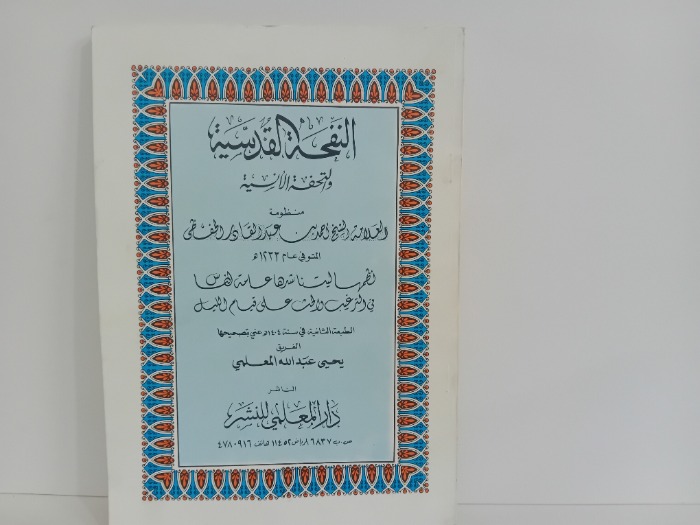 النفحة القدسية
والتحفة الأنسية
منظومة
العلامة الشيخ احمد بن عبد القادر الحفظي
المتوفي عام ١٢٣٣ه
نظمها ليتناشدها عامة الناس
في الترغيب والحث على قيام الليل
الطبعة الثانية، في سنة ١٤٠٤ه عني بتصحيحها
الفريق
يحيى عبد الله المعلمي
الناشر
دار المعلمي للنشر
ص.ب ٦٨٣٧ الرياض ١١٤٥٢ هاتف ٤٧٨٠٩١٦